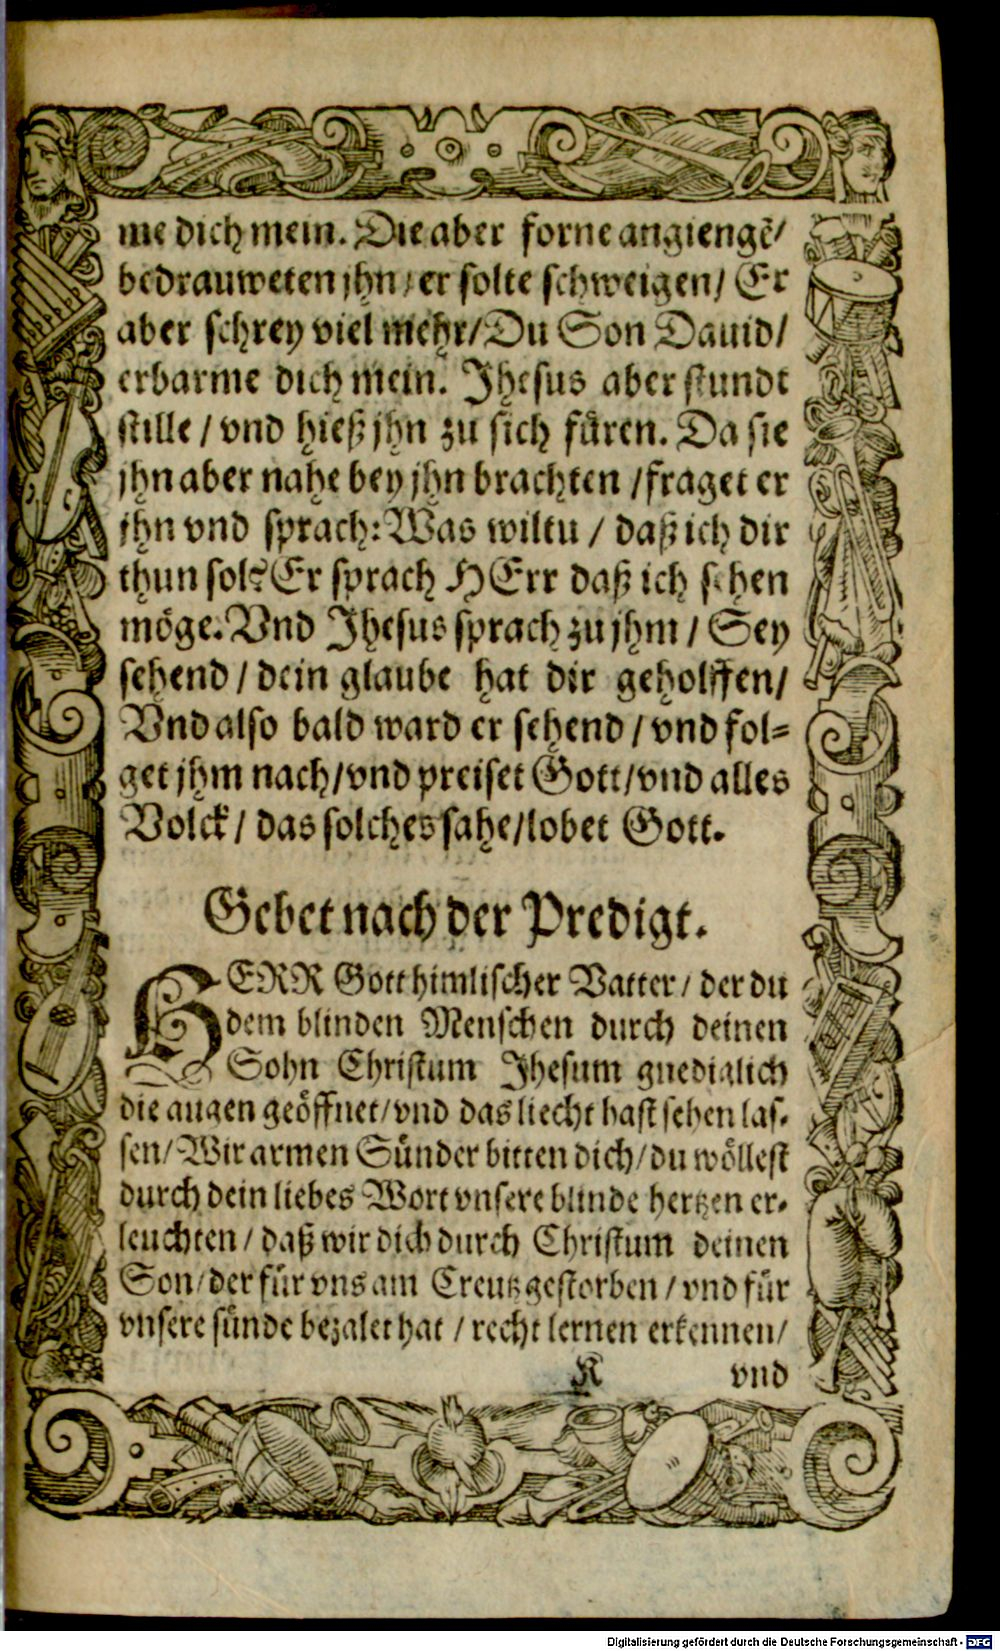 me dich mein. Die aber forne angiengẽ/
bedrauweten jhn / er solte schweigen / Er
aber schrey viel mehr / Du Son Dauid /
erbarme dich mein. Jhesus aber stundt
stille / vnd hieß jhn zu sich füren. Da sie
jhn aber nahe bey jhn brachten / fraget er
jhn vnd sprach: Was wiltu / daß ich dir
thun sol? Er sprach HErr daß ich sehen
möge. Vnd Jhesus sprach zu jhm / Sey
sehend / dein glaube hat dir geholffen /
Vnd also bald ward er sehend / vnd fol-
get jhm nach / vnd preiset Gott / vnd alles
Volck / das solches sahe / lobet Gott.
Gebet nach der Predigt.
HERR Gott himlischer Vatter / der du
dem blinden Menschen durch deinen
Sohn Christum Jhesum gnediglich
die augen geöffnet / vnd das liecht hast sehen las-
sen / Wir armen Sünder bitten dich / du wöllest
durch dein liebes Wort vnsere blinde hertzen er-
leuchten / daß wir dich durch Christum deinen
Son / der für vns am Creutz gestorben / vnd für
vnsere sünde bezalet hat / recht lernen erkennen /
K vnd
Digitalisierung gefördert durch die Deutsche Forschungsgemeinschaft - DFG